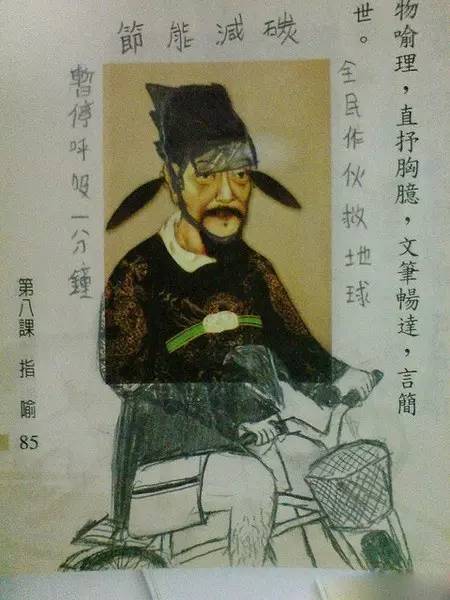 物喻理，直抒胸臆，文筆暢達，言簡
世。
節能減碳
全民作伙救地球
暫停呼吸一分鐘
第八課 指喻 85